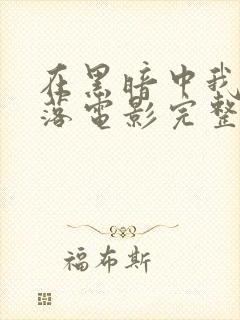 在黑暗中我
落电影完整
福布斯